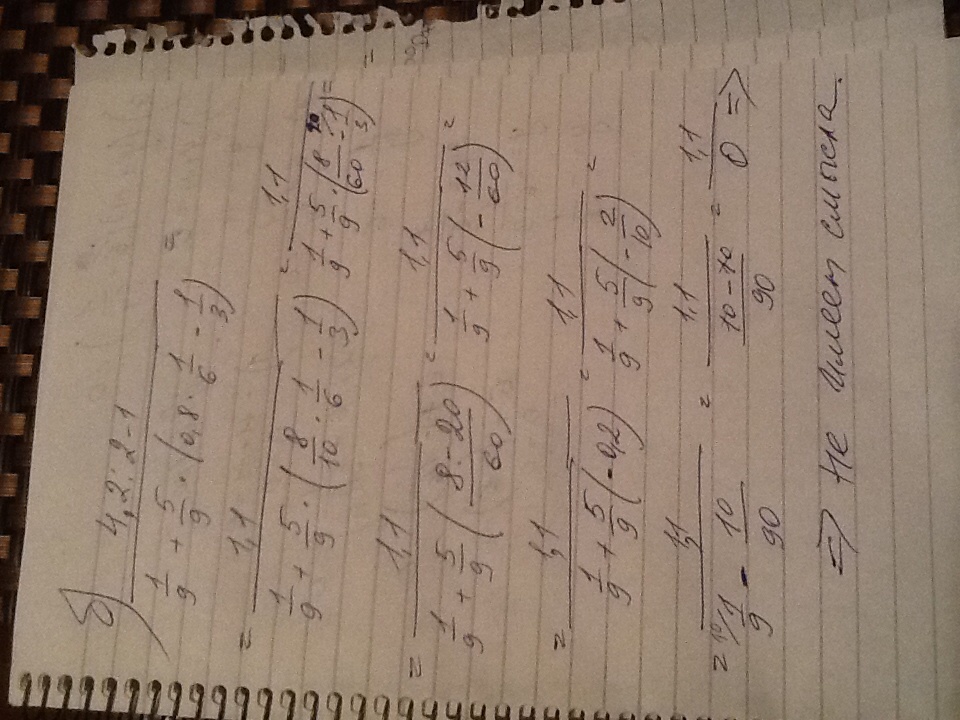 б) (4,2 : 2 - 1) / (1/9 + 5/9 · (0,8 · 1/6 - 1/3)) =
= 1,1 / (1/9 + 5/9 · (8/10 · 1/6 - 1/3)) = 1,1 / (1/9 + 5/9 · (8/60 - 1/3 \20)) =
= 1,1 / (1/9 + 5/9 ((8 - 20)/60)) = 1,1 / (1/9 + 5/9 (- 12/60)) =
= 1,1 / (1/9 + 5/9 (-0,2)) = 1,1 / (1/9 + 5/9 (- 2/10)) =
= 1,1 / (10/ 1/9 - 10/90) = 1,1 / ((10 - 10)/90) = 1,1 / 0 =>
=> Не имеет смысла.